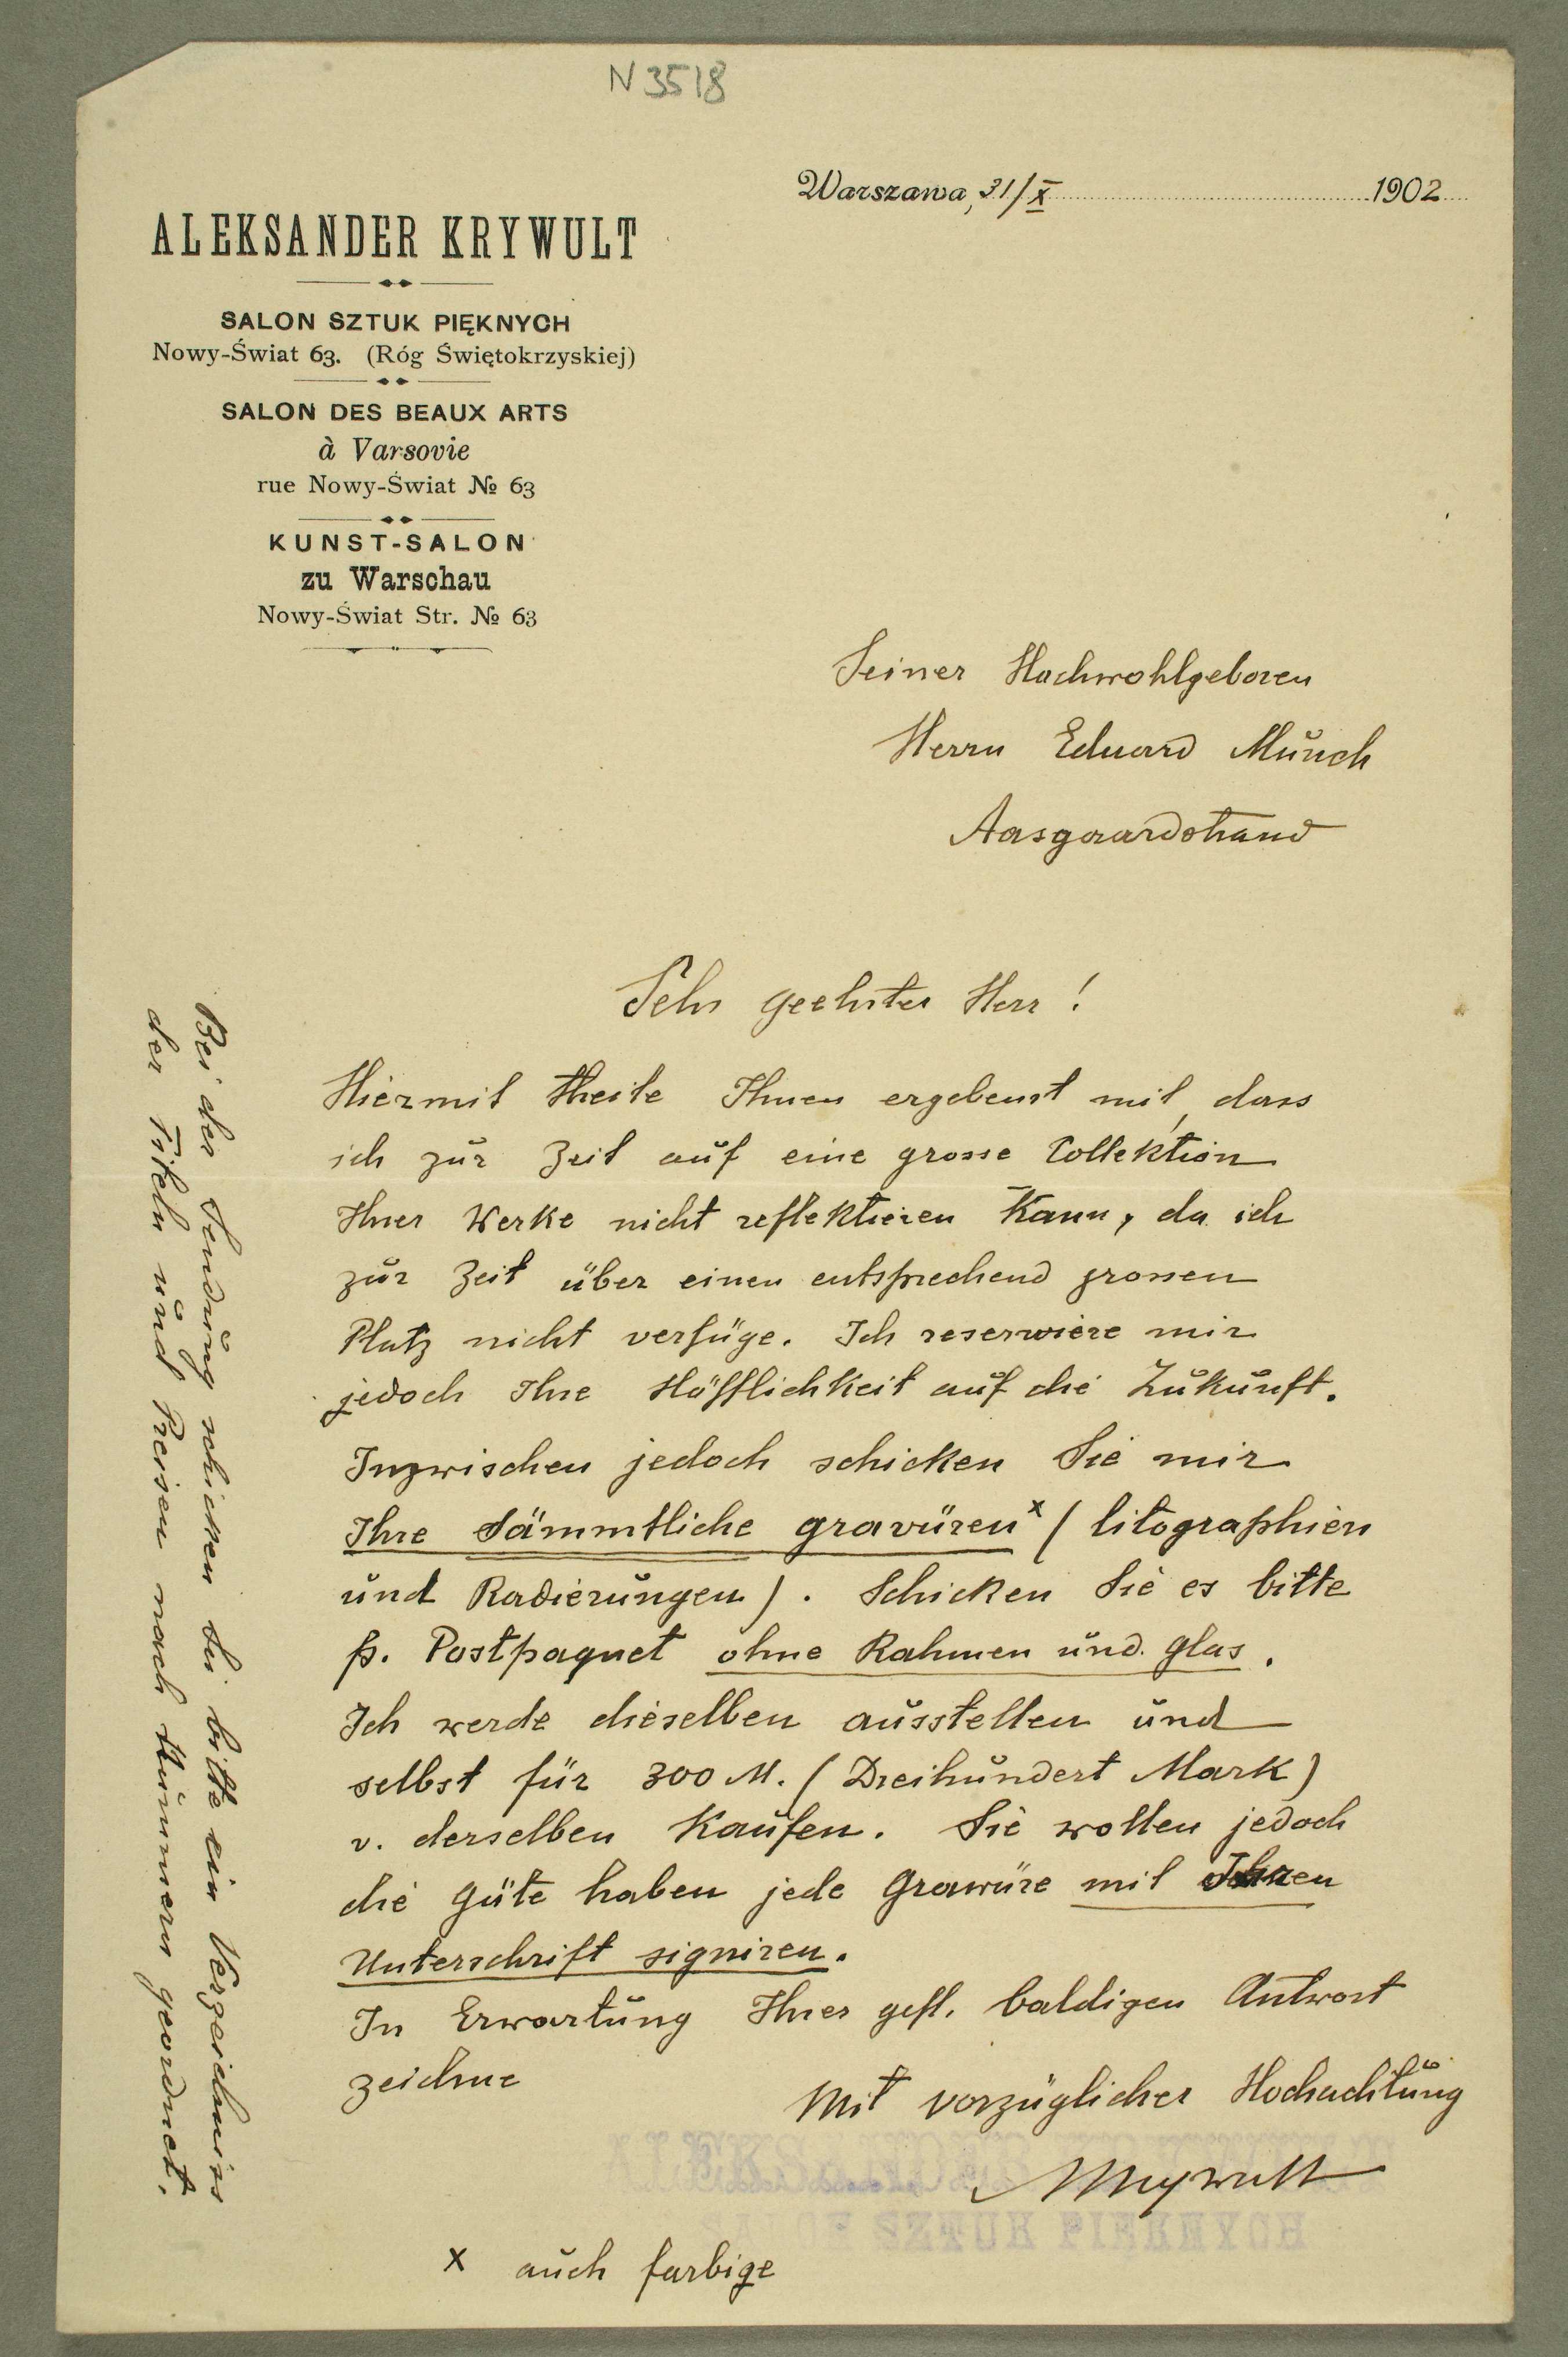 N 3518
Warszawa, 31/X 1902
ALEKSANDER KRYWULT
SALON SZTUK PIĘKNYCH
Nowy-Świat 63. (Róg Świętokrzyskiej)
SALON DES BEAUX ARTS
à Varsovie
rue Nowy-Świat № 63
KUNST-SALON
zu Warschau
Nowy-Świat Str. № 63
Seiner Hochwohlgeboren
Herrn Eduard Münch
Aasgaardstrand
Sehr geehrter Herr!
Hiermit theile Ihnen ergebenst mit, dass
ich zur Zeit auf eine grosse Collektion
Ihrer Werke nicht reflektieren kann, da ich
zur Zeit über einen entsprechend grossen
Platz nicht verfüge. Ich reserwiere mir
jedoch Ihre Höfflichkeit auf die Zukunft.
Inzwischen jedoch schicken Sie mir
Ihre sämmtliche gravüren x (litographien
und Radierungen). Schicken Sie es bitte
p. Postpaquet ohne Rahmen und Glas.
Ich werde dieselben ausstellen und
selbst für 300 M. (Dreihundert Mark)
v. derselben kaufen. Sie wollen jedoch
die Güte haben jede Grawüre mit Ihren
Unterschrift signiren.
In Erwartung Ihrer gefl. baldigen Antwort
zeichne
Mit vorzüglicher Hochachtung
AKrywult
ALEKSANDER KRYWULT
SALON SZTUK PIĘKNYCH
x auch farbige
Bei der Sendung schicken Sie bitte ein Verzeichniss
der Titeln und Preisen nach Nummern geordnet.